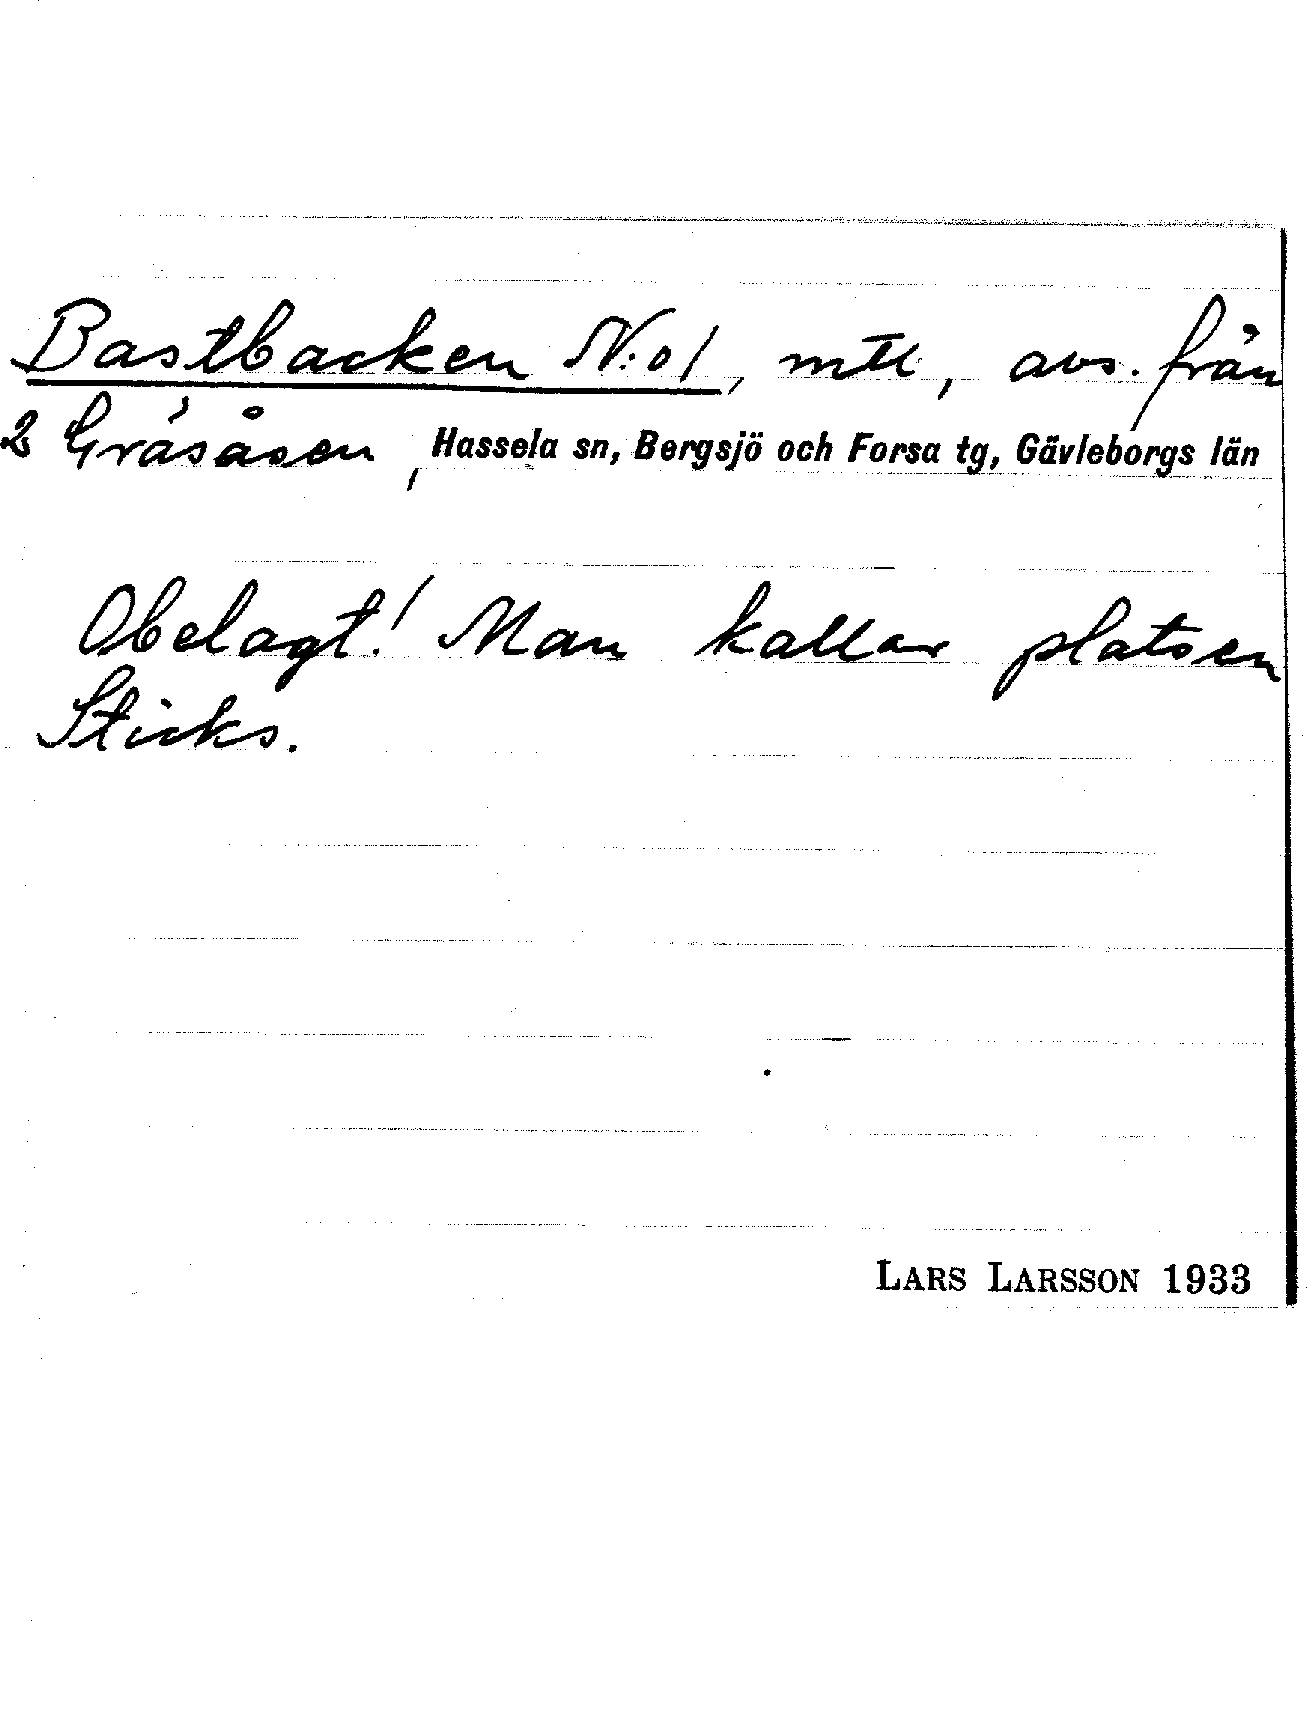 Bastbacken N:o 1, mtl, avs. från
2 Gräsåsen, Hassela sn, Bergsjö och Forsa tg, Gävleborgs län
Obelagt! Man kallar platsen
Sticks.
LARS LARSSON 1933